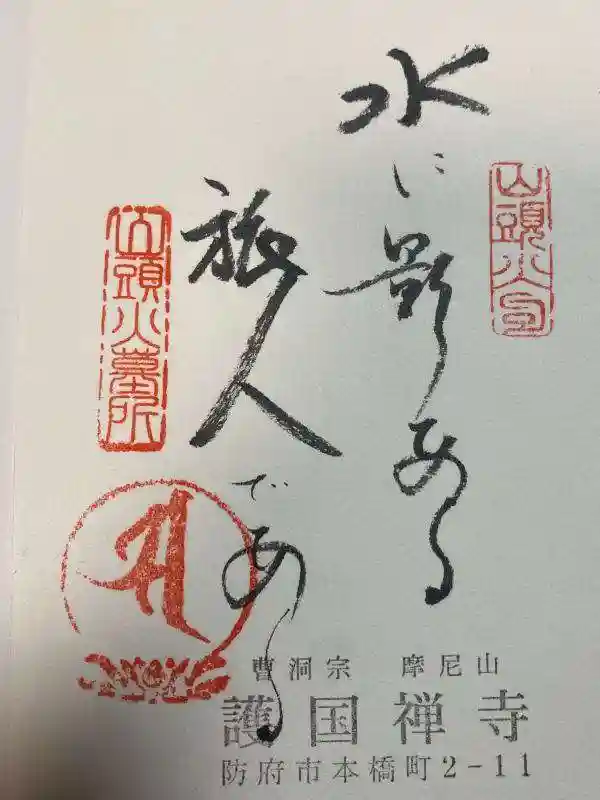 山頭火
水に影ある
旅人である
山頭火墓所
曹洞宗 摩尼山
護国禅寺
防府市本橋町2-11